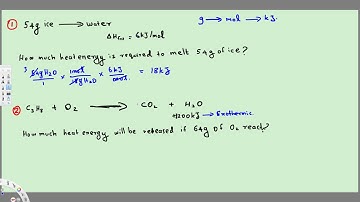 ① 54g ice → water g → mol → kJ
ΔHfus = 6kJ/mol
How much heat energy is required to melt 54g of ice?
54g H₂O/1 × 1mol/18g H₂O × 6kJ/mol = 18kJ
② C₃H₈ + O₂ → CO₂ + H₂O
+1200kJ → Exothermic
How much heat energy will be released if 64g of O₂ react?